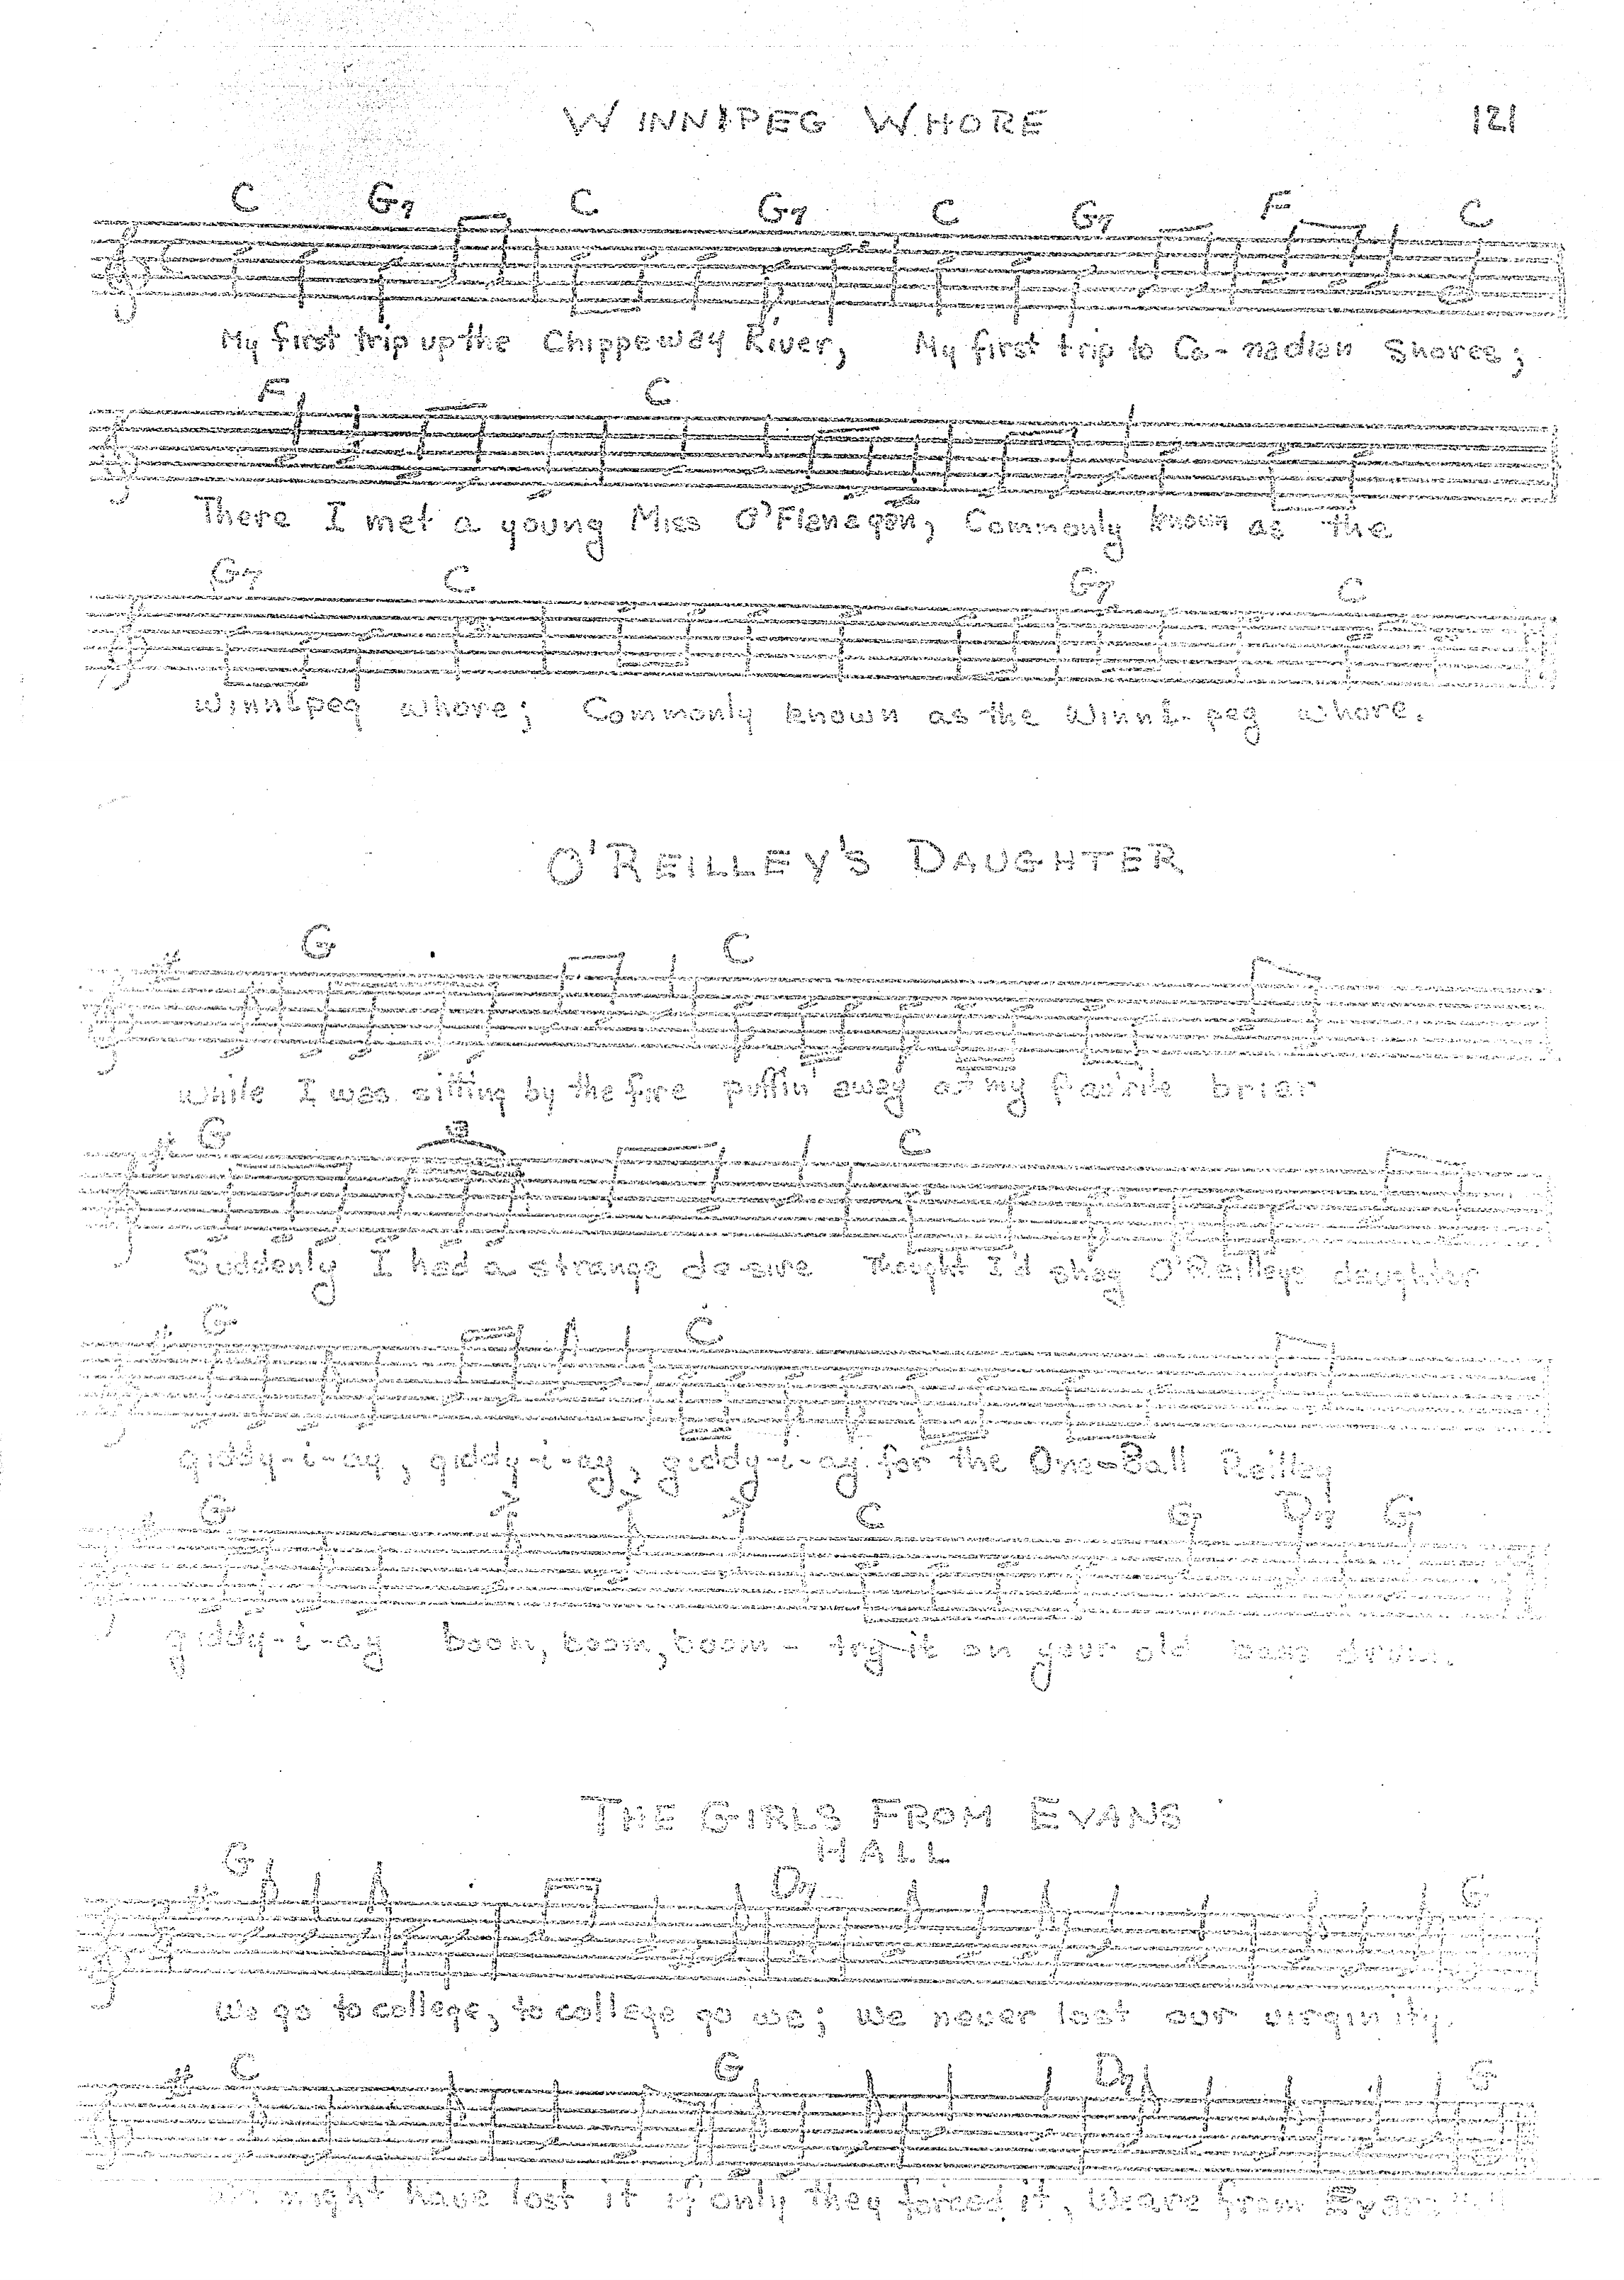 WINNIPEG WHORE 121
C G7 C G7 C G7 F C
My first trip up the Chippeway River, My first trip to Ca-nadian Shores;
F C
There I met a young Miss O'Flanagan, Commonly known as the
G7 C G7 C
Winnipeg whore; Commonly known as the Winni-peg whore.
O'REILLEY'S DAUGHTER
G C
While I was sitting by the fire puffin away at my fav'rite brier
G C
Suddenly I had a strange desire Thought I'd shag O'Reilleys daughter
G C
giddy-i-ay, giddy-i-ay, giddy-i-ay for the One-Ball Reilley
G C G D7 G
giddy-i-ay boom, boom, boom - try it on your old bass drum.
THE GIRLS FROM EVANS
G D7 G
We go to college, to college go we; We never lost our virginity.
C G D7 G
might have lost it if only they forced it, We are from